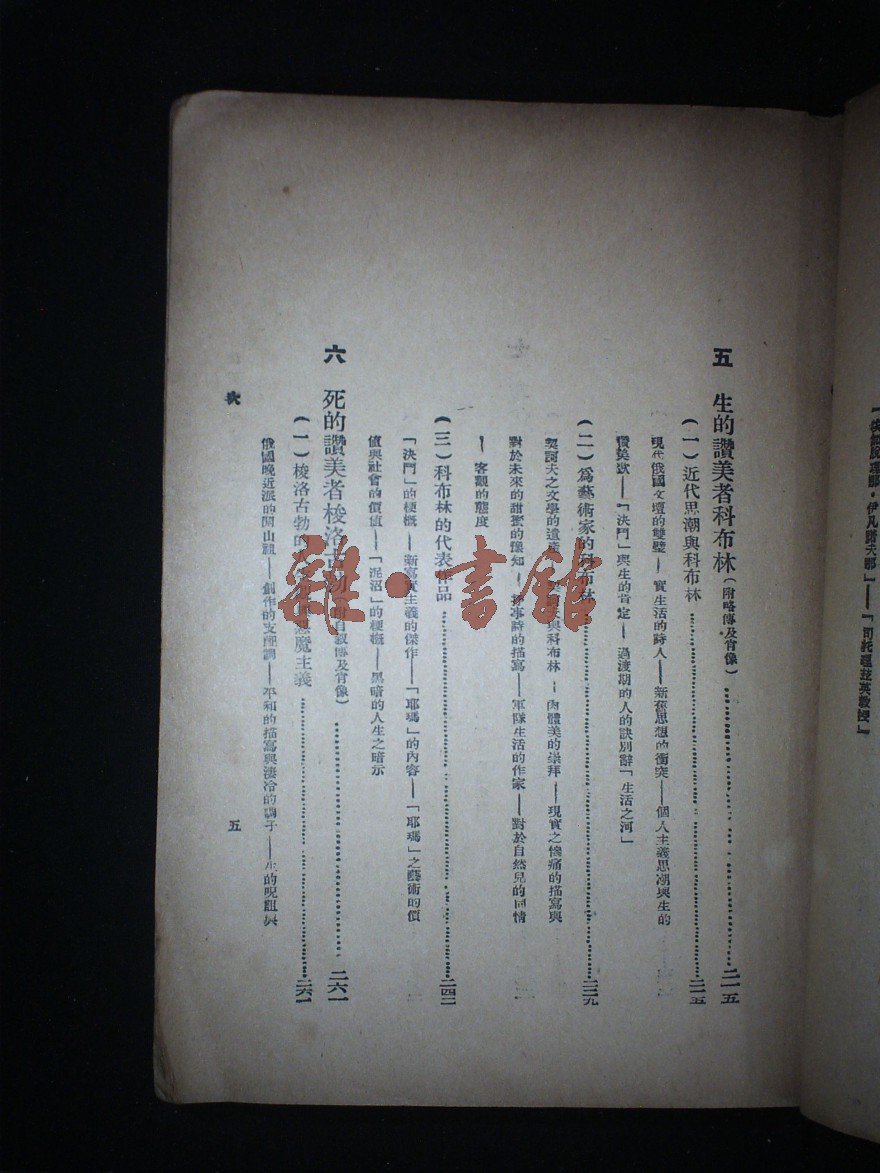 五　生的讚美者科布林（附略傳及肖像）……二一五
（一）近代思潮與科布林……二一五
現代俄國文壇的雙璧——實生活的時人——新舊思想的衝突——個人主義思潮與生的
讚美歌——「決鬥」與生的肯定——過渡期的人的訣別辭「生活之河」
（二）爲藝術家的科布林……二三九
契訶夫之文學的遺產——契訶夫與科布林——肉體美的崇拜——現實之慘痛的描寫與
對於未來的甜蜜的豫知——事時的描寫——軍隊生活的作家——對於自然兒的同情
——客觀的態度
（三）科布林的代表作品……二四二
「決鬥」的梗概——新寫實主義的傑作——「耶瑪」的內容——「耶瑪」之藝術的價
值與社會的價值——「泥沼」的梗概——黑暗的人生之暗示
六　死的讚美者梭洛古勃（附自叙傳及肖像）……二六一
（一）梭洛古勃的惡魔主義……二六一
俄國晚近派的開山祖——創作的支配調——平和的描寫與淒冷的調子——生的呪詛與
次
五
伊凡諾夫那」——「司托里芝英教授」
雜·書館